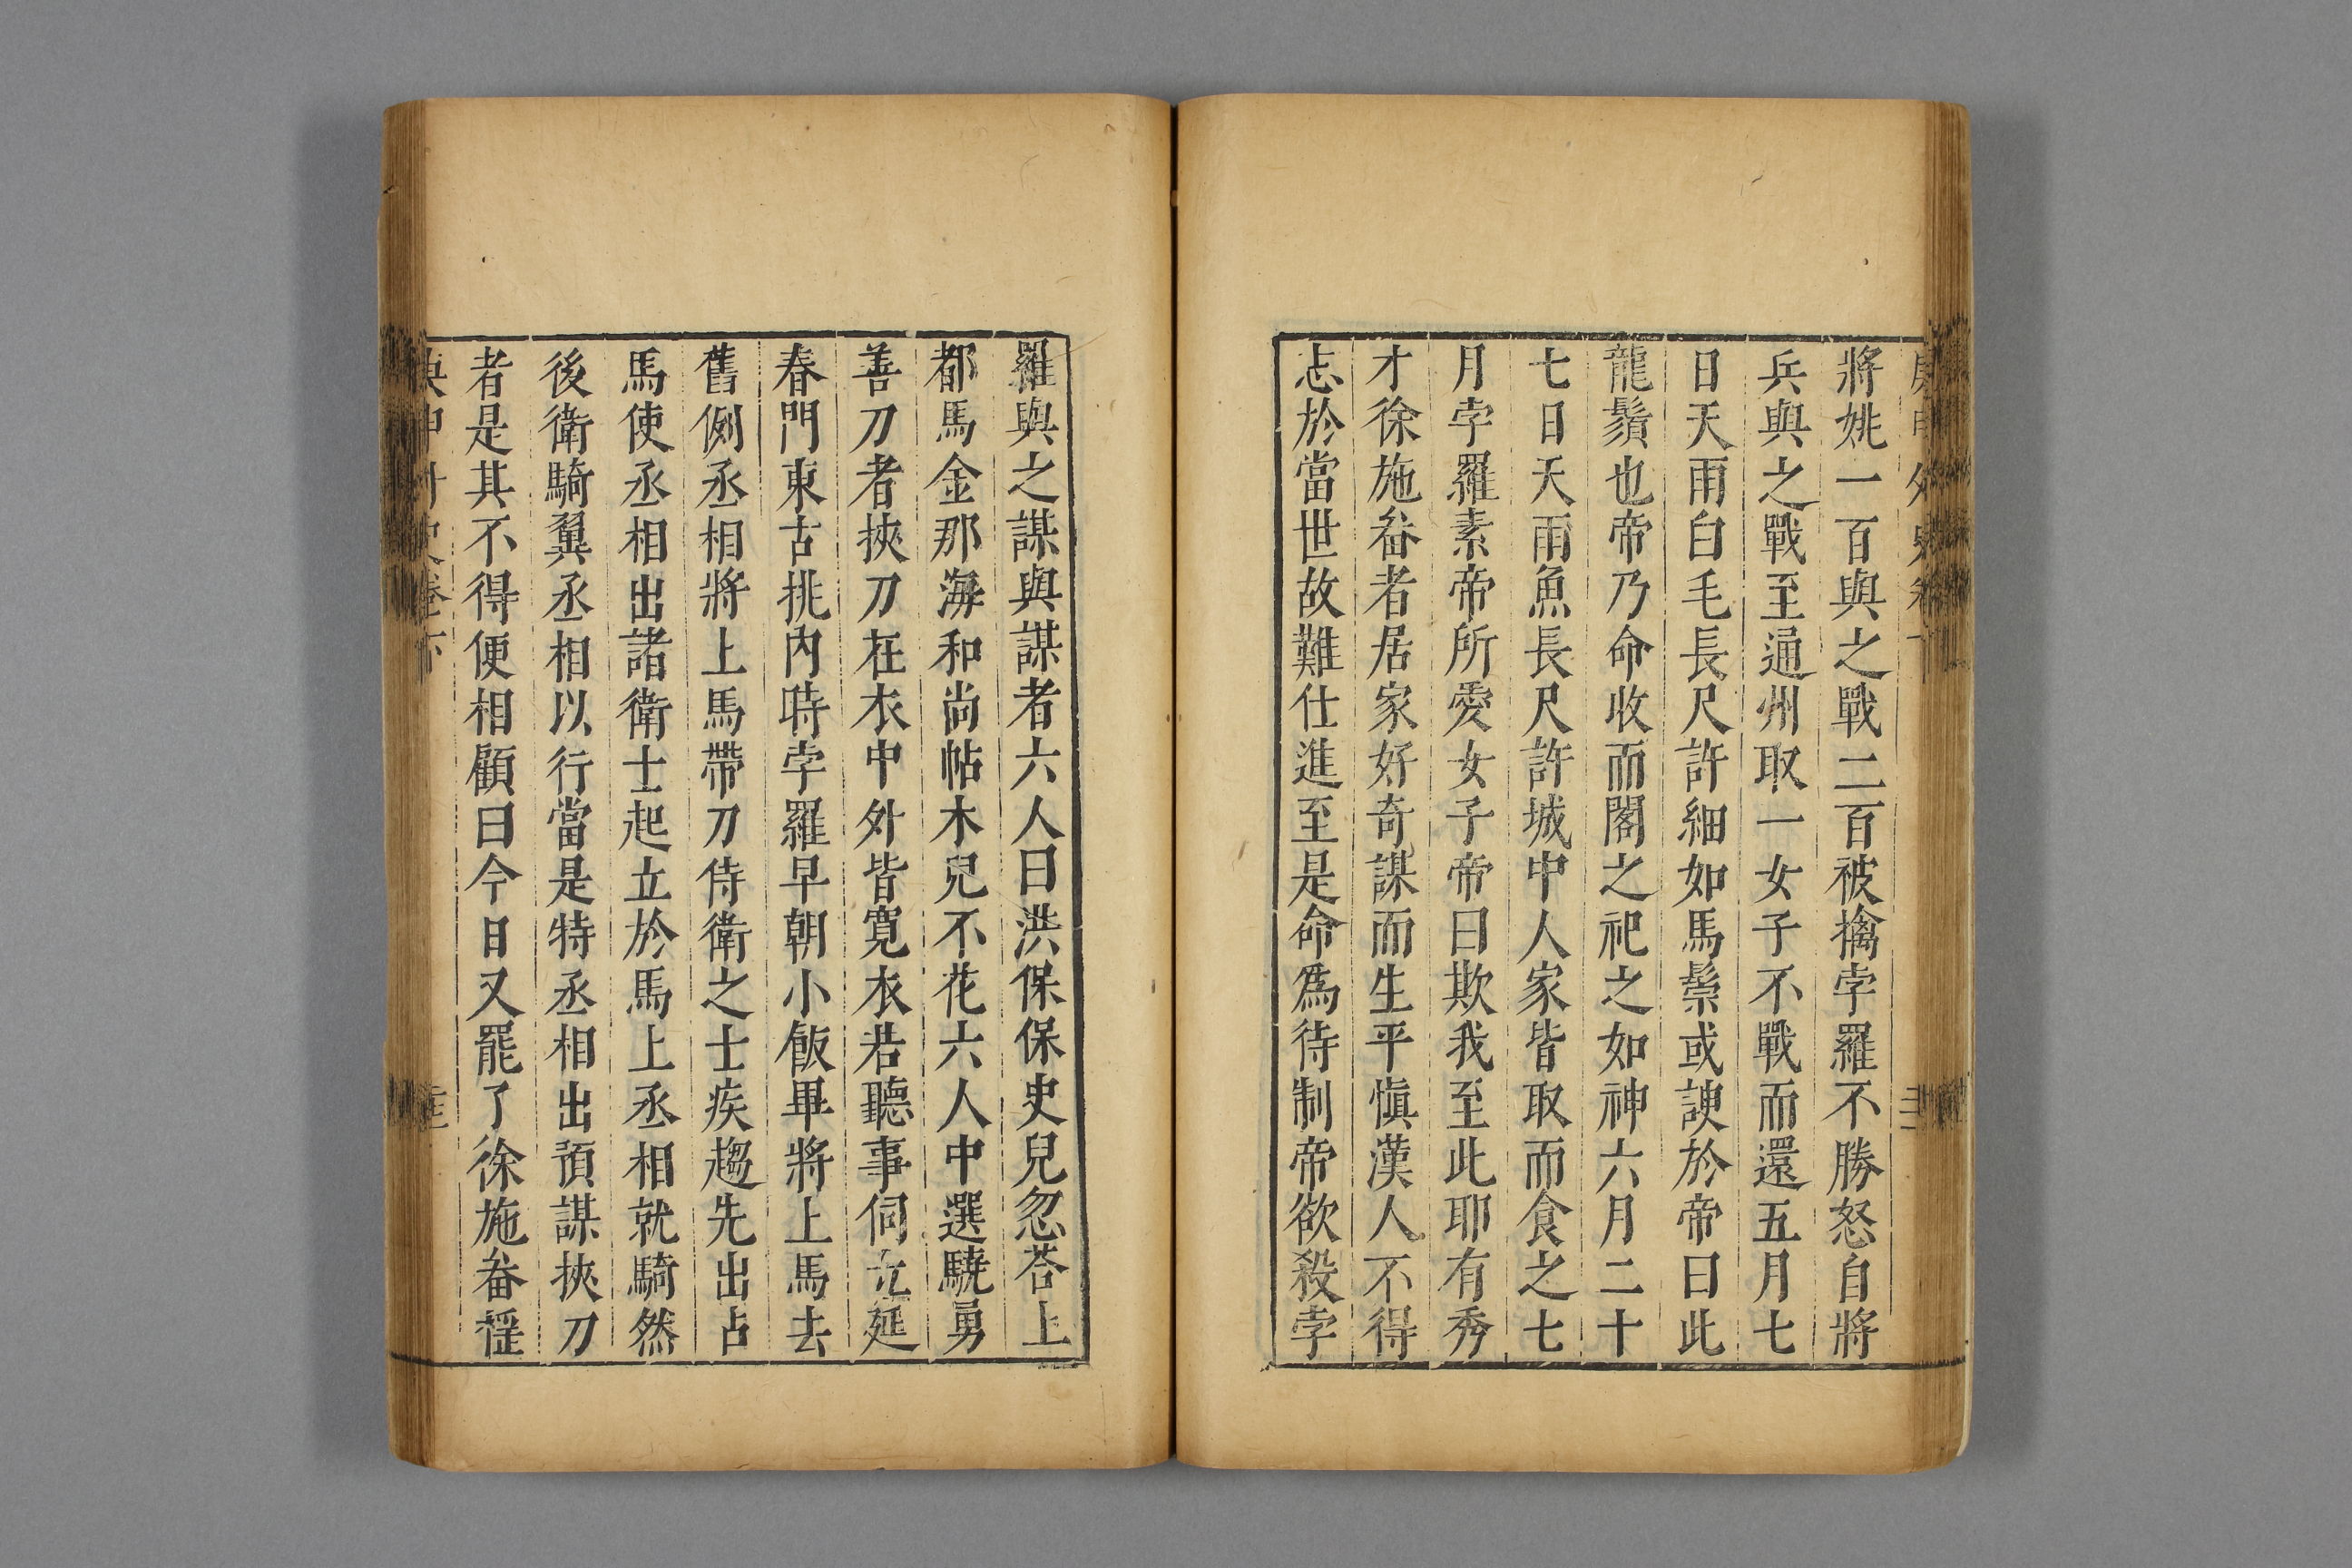 將姚一百與之戰二百被擒孛羅不勝怒自將
兵與之戰至通州取一女子不戰而還五月七
日天雨白毛長尺許細如馬鬃或諛於帝曰此
龍鬚也帝乃命收而閣之祀之如神六月二十
七日天雨魚長尺許城中人家皆取而食之七
月孛羅素帝所愛女子帝曰欺我至此耶有秀
才徐施畚者居家好奇謀而生平愼漢人不得
志於當世故難仕進至是命爲待制帝欲殺孛
羅與之謀與謀者六人曰洪保保史兒忽荅上
都馬金那海和尚帖木兒不花六人中選驍勇
善刀者挾刀在衣中外皆寬衣若聽事伺立延
春門東古挑內時孛羅早朝小飯畢將上馬去
舊例丞相將上馬帶刀侍衛之士疾趨先出占
馬使丞相出諸衛士起立於馬上丞相就騎然
後衛騎翼丞相以行當是特丞相出預謀挾刀
者是其不得便相顧曰今日又罷了徐施畚